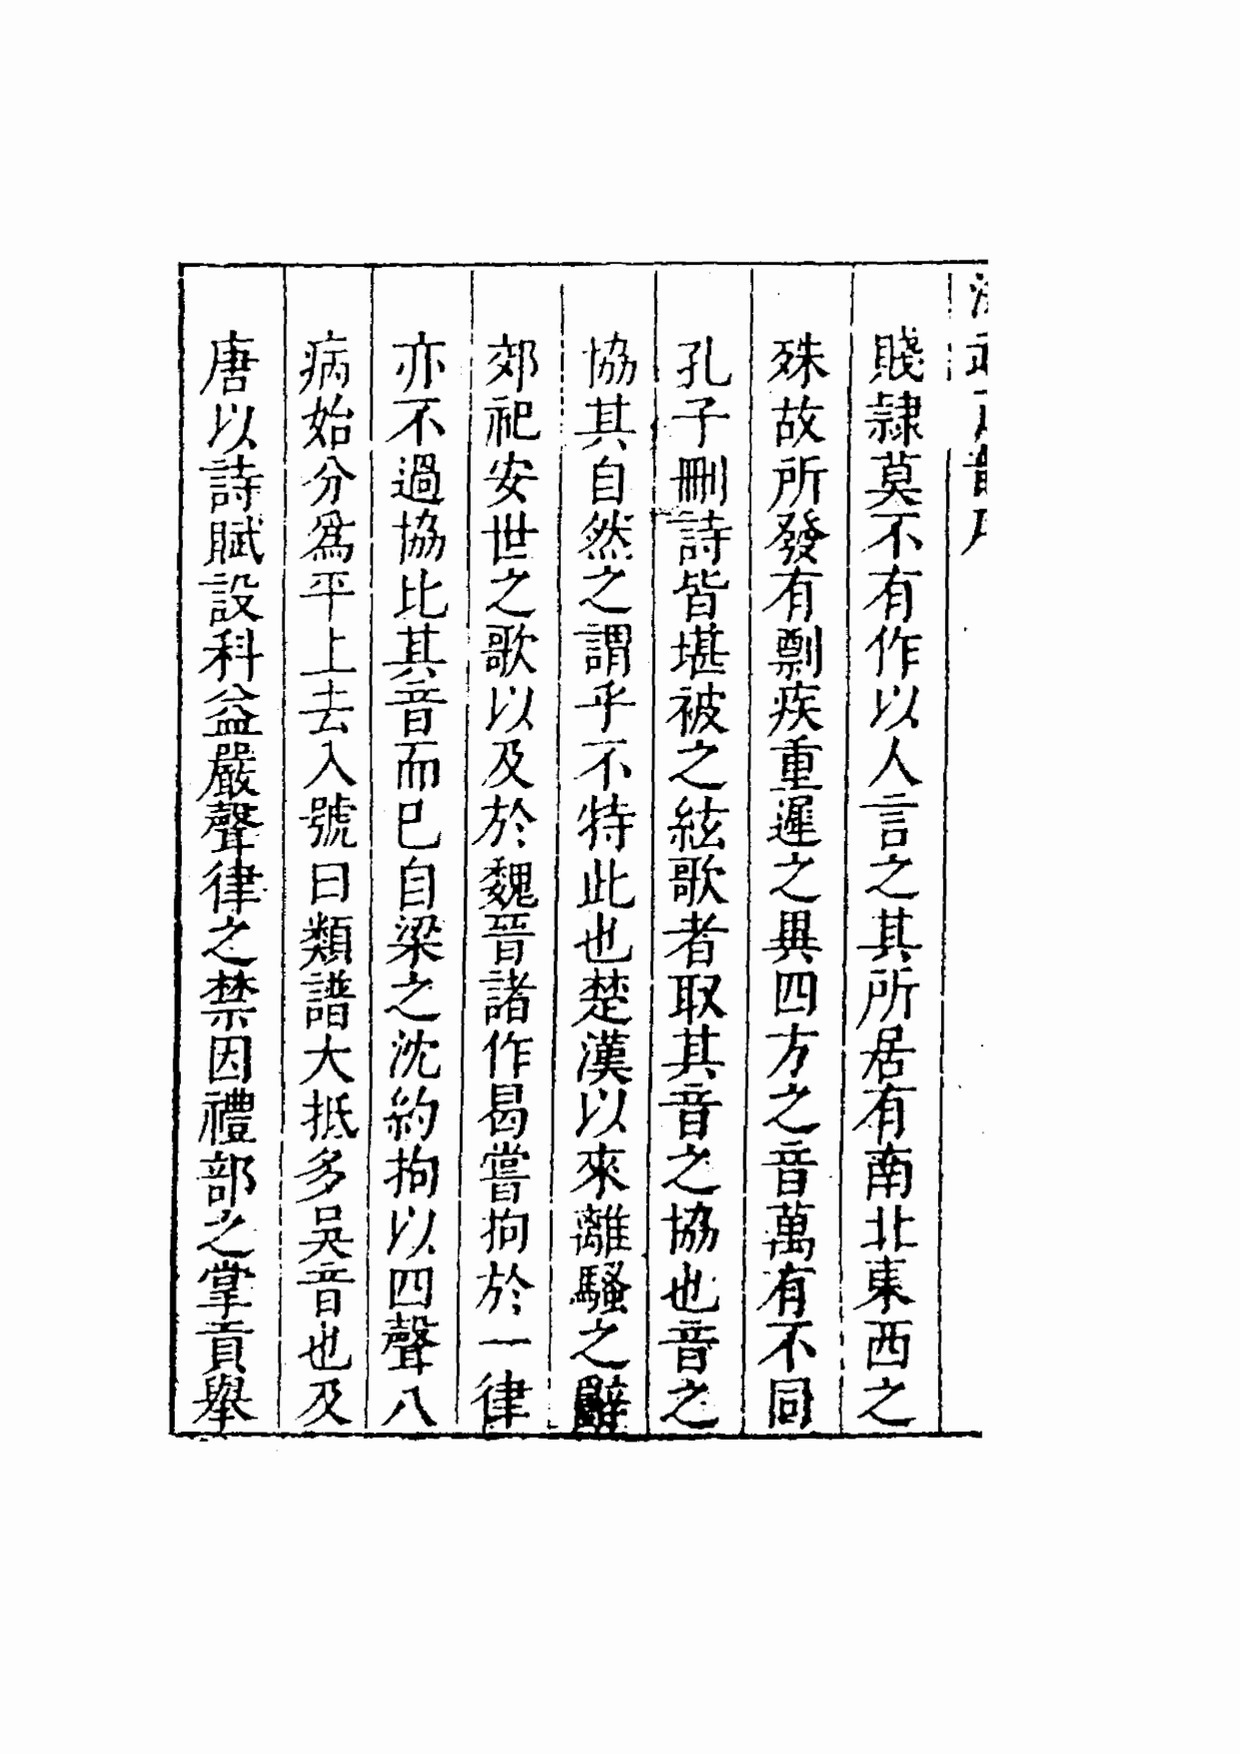 賤隷莫不有作以人言之其所居有南北東西之
殊故所發有剽疾重遲之異四方之音萬有不同
孔子刪詩皆堪被之絃歌者取其音之協也音之
協其自然之謂乎不特此也楚漢以來離騷之辭
郊祀安世之歌以及於魏晉諸作曷嘗拘於一律
亦不過協比其音而已自梁之沈約拘以四聲八
病始分爲平上去入號曰類譜大抵多吳音也及
唐以詩賦設科益嚴聲律之禁因禮部之掌貢舉